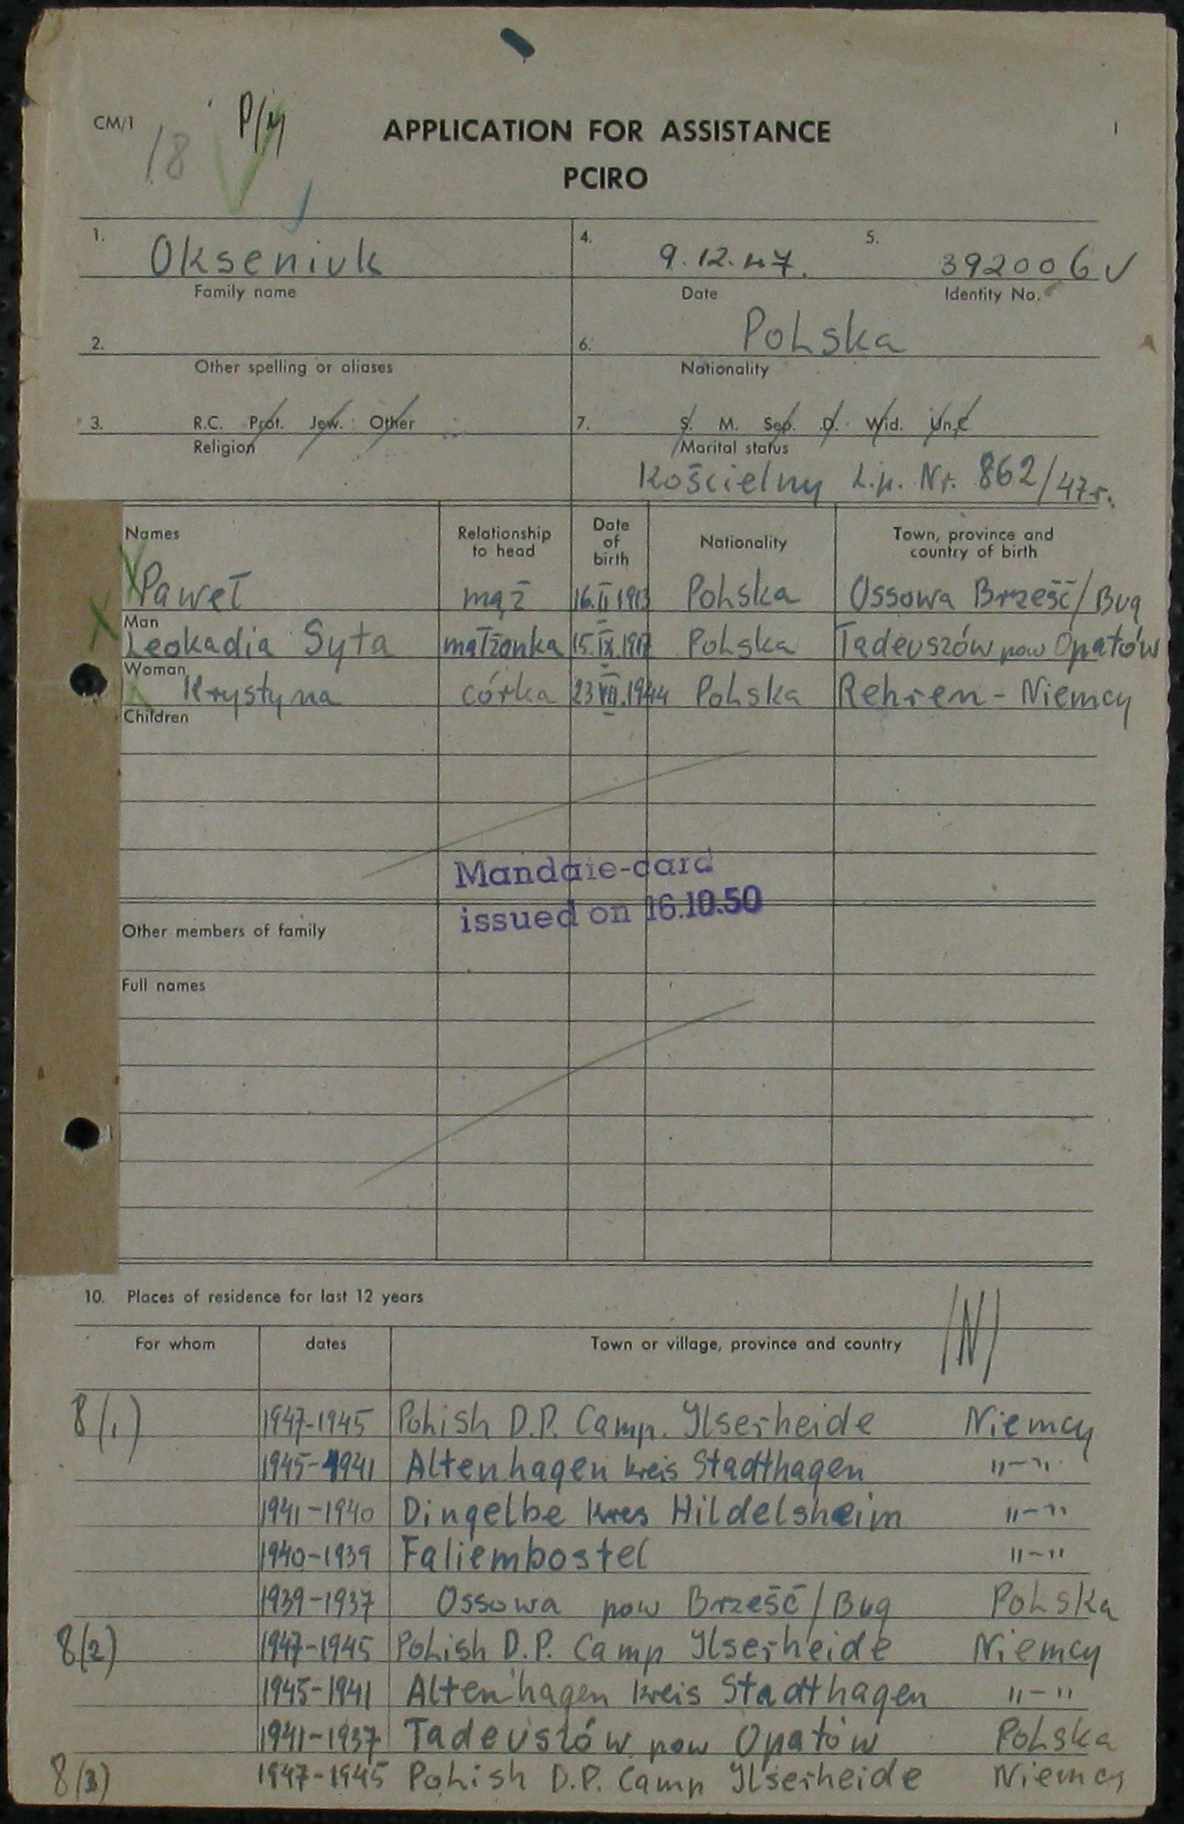 CM/1
18
P/M
APPLICATION FOR ASSISTANCE
1
PCIRO
1. Okseniuk
4. 9.12.47.
5. 392006
Family name
Date
Identity No.
2.
6. Polska
Other spelling or aliases
Nationality
3. R.C. Prot. Jew. Other
7. S. M. Sep. D. Wid. Un.C
Religion
Marital status
Kościelny L.p. Nr. 862/47r.
Names
Relationship to head
Date of birth
Nationality
Town, province and country of birth
Paweł mąż 16.II.1913 Polska Ossowa Brześć/Bug
Man
Leokadia Syta małżonka 15.IX.1917 Polska Tadeuszów pow Opatów
Woman
Krystyna córka 23.VII.1944 Polska Rehren - Niemcy
Children
Mandate-card
issued on 16.10.50
Other members of family
Full names
10. Places of residence for last 12 years
/N/
For whom dates Town or village, province and country
8(1) 1947-1945 Polish D.P. Camp. Ilserheide Niemcy
1945-1941 Altenhagen kreis Stadthagen "-"
1941-1940 Dingelbe kres Hildelsheim "-"
1940-1939 Faliembostel "-"
1939-1937 Ossowa pow Brześć/Bug Polska
8(2) 1947-1945 Polish D.P. Camp Ilserheide Niemcy
1945-1941 Altenhagen kreis Stadthagen "-"
1941-1937 Tadeuszów pow Opatów Polska
8(3) 1947-1945 Polish D.P. Camp Ilserheide Niemcy